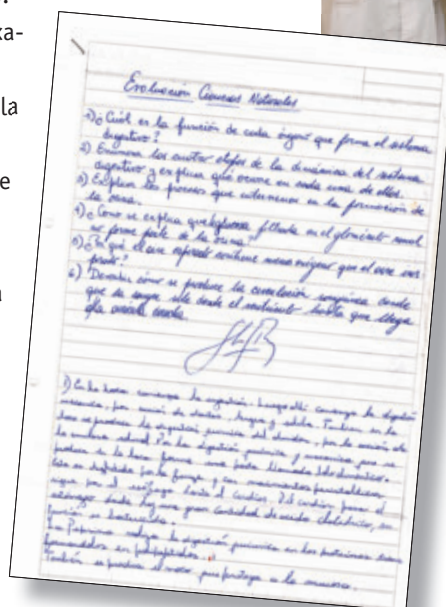 xa-
la
e
a
Evaluación Ciencias Naturales
1) ¿Cuál es la función de cada órgano que forma el sistema
digestivo?
2) Enumera las cuatro etapas de la dinámica del sistema
digestivo y explica qué ocurre en cada una de ellas.
3) Explica los procesos que intervienen en la formación de
la orina.
4) ¿Cómo se explica que glucosa filtrada en el glomérulo renal
no forme parte de la orina?
5) ¿Por qué el aire espirado contiene menos oxígeno que el aire
6) Describa cómo se produce la circulación sanguínea desde
que la sangre sale desde el ventrículo hasta que llega
1) En la boca comienza la ingestión. Luego allí comienza la digestión
mecánica, por acción de dientes, lengua y saliva. También en la
boca se produce la digestión química del almidón, por la acción de
la amilasa salival. De la digestión química y mecánica que se
produce en la boca forma una pasta llamada bolo alimenticio.
Este es deglutido por la faringe y con movimientos peristálticos
sigue por el esófago hasta el cardias. Del cardias pasa al
estómago donde hay una gran cantidad de ácido clorhídrico, su
función es bactericida.
La Pepsina realiza la digestión química en las proteínas
También se produce el moco, que protege a la mucosa.